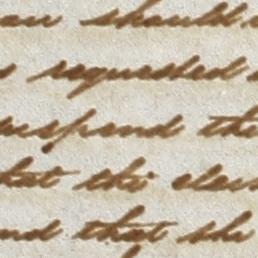 should
requested
suspend the
that the elec
and that she